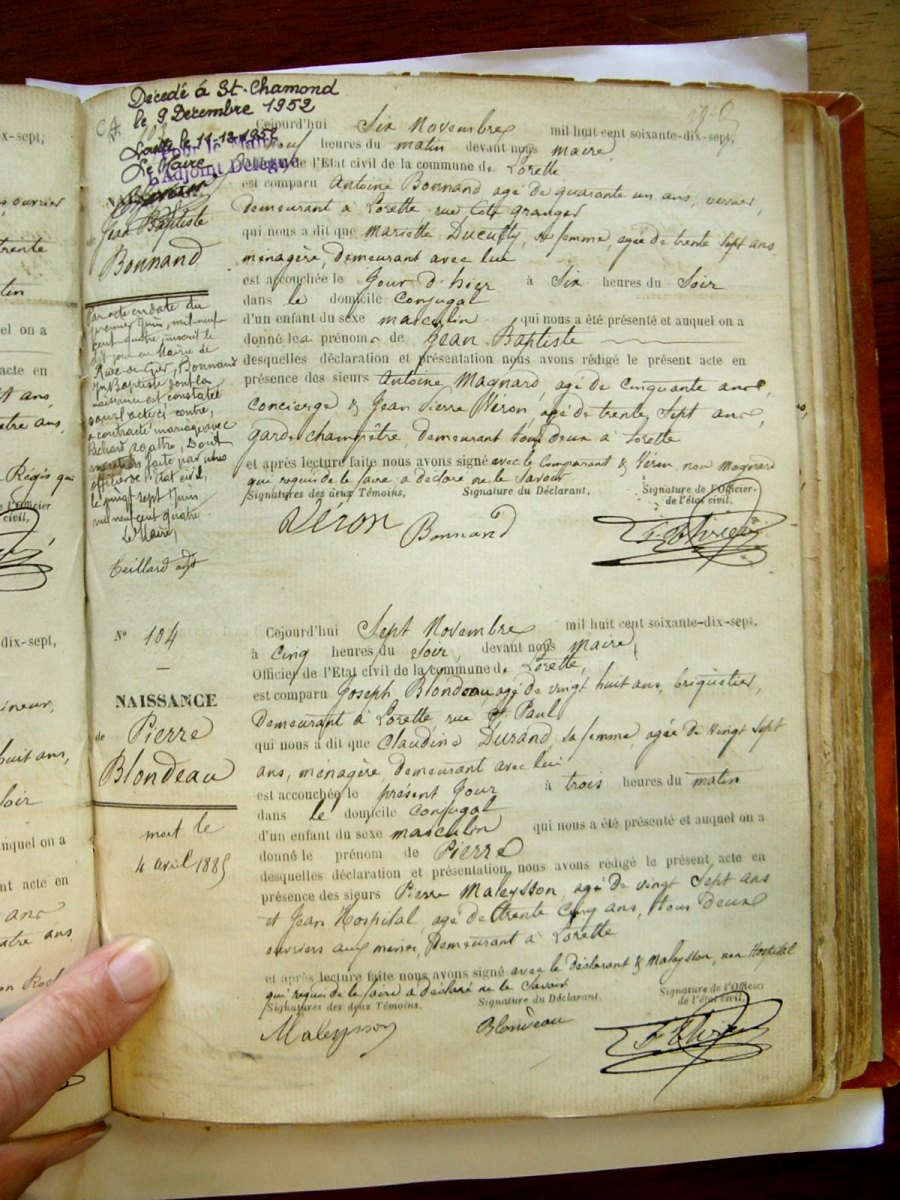 Décédé à St-Chamond
le 9 Décembre 1952
le 11-12-1952
Le Maire
Pour le Maire
l'Adjoint Délégué
Jean Baptiste
Bonnand
par acte en date du
premier Juin, mil neuf
cent quatre, inscrit le
dit jour en Mairie de
Rive de Gier, Bonnand
Jn Baptiste dont la
naissance est constatée
sous l'acte ci-contre,
a contracté mariage avec
Richard Agathe, Dont
mention faite par nous
officier de l'état civil,
le vingt sept Juin
mil neuf cent quatre
Le Maire,
Teillard adjt
Cejourd'hui Six Novembre mil huit cent soixante-dix-sept,
neuf heures du matin devant nous maire,
Officier de l'Etat civil de la commune de Lorette
est comparu Antoine Bonnand agé de quarante un ans, verrier,
demeurant à Lorette rue Côte Granger
qui nous a dit que Mariette Ducutty, sa femme, agée de trente Sept ans
ménagère, demeurant avec lui
est accouchée le Jour d'hier à Six heures du Soir
dans le domicile Conjugal
d'un enfant du sexe masculin qui nous a été présenté et auquel on a
donné les prénoms de Jean Baptiste
desquelles déclaration et présentation nous avons rédigé le présent acte en
présence des sieurs Antoine Magnard, agé de Cinquante ans,
Concierge & Jean Pierre Véron, agé de trente Sept ans,
garde champêtre, demeurant tous deux à Lorette
et après lecture faite nous avons signé avec le Comparant & Véron non Magnard
qui requis de le faire a déclaré ne le Savoir
Signatures des deux Témoins, Signature du Déclarant, Signature de l'Officier
de l'état civil,
Véron Bonnand
N° 104
NAISSANCE
de Pierre
Blondeau
mort le
4 avril 1885
Cejourd'hui Sept Novembre mil huit cent soixante-dix-sept,
à Cinq heures du Soir, devant nous Maire,
Officier de l'Etat civil de la commune de Lorette,
est comparu Joseph Blondeau, agé de vingt huit ans, briquetier,
Demeurant à Lorette rue St Paul
qui nous a dit que Claudine Durand, sa femme, agée de vingt Sept
ans, ménagère, demeurant avec lui
est accouchée le présent Jour à trois heures du matin
dans le domicile Conjugal
d'un enfant du sexe masculin qui nous a été présenté et auquel on a
donné le prénom de Pierre
desquelles déclaration et présentation nous avons rédigé le présent acte en
présence des sieurs Pierre Maleysson, agé de vingt Sept ans
et Jean Hospital, agé de trente Cinq ans, tous deux
ouvriers aux mines, demeurant à Lorette
et après lecture faite nous avons signé avec le déclarant & Maleysson, non Hospital
qui requis de le faire a déclaré ne le Savoir
Signatures des deux Témoins, Signature du Déclarant. Signature de l'Officier
de l'état civil,
Maleysson Blondeau